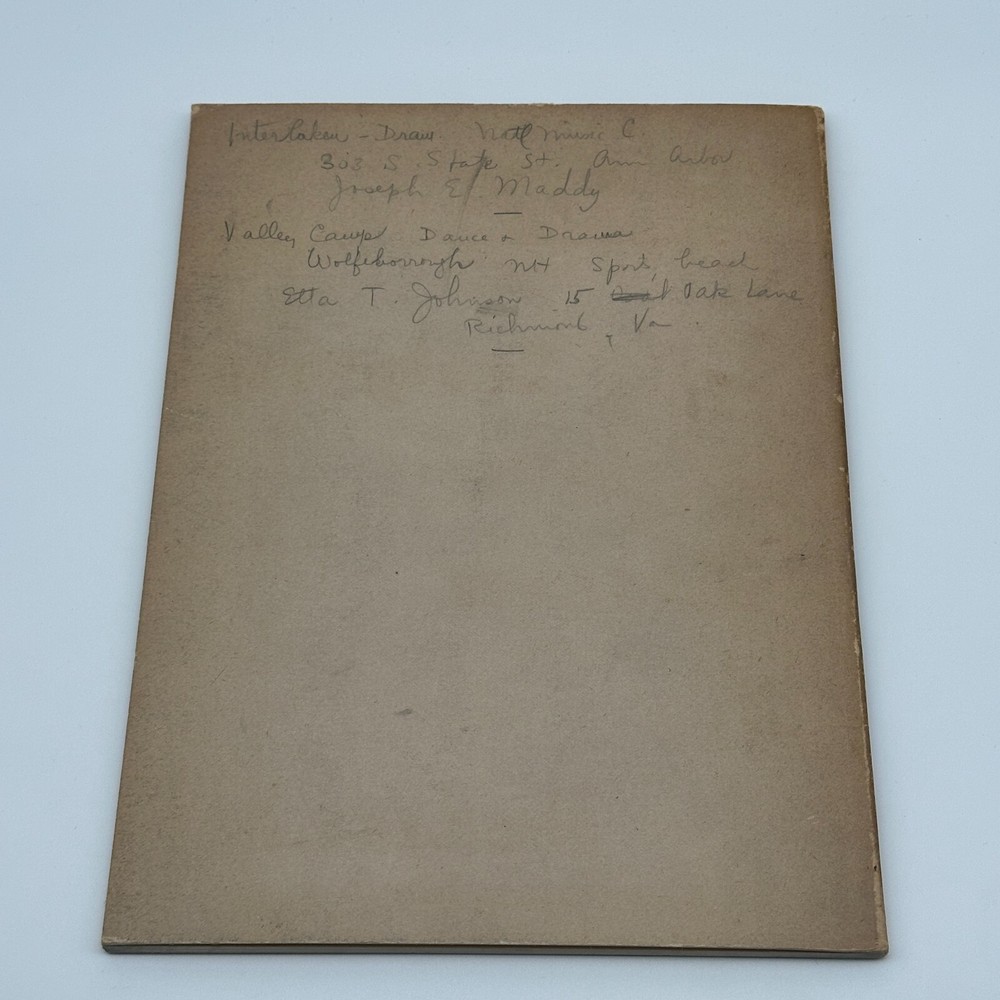 Interlaken - Dram. Natl Music C.
303 S. State St. Ann Arbor
Joseph E. Maddy
Valley Camp Dance & Drama
Wolfeborough NH Sports, head
Etta T. Johnson 15 Oak Lane
Richmond, Va.